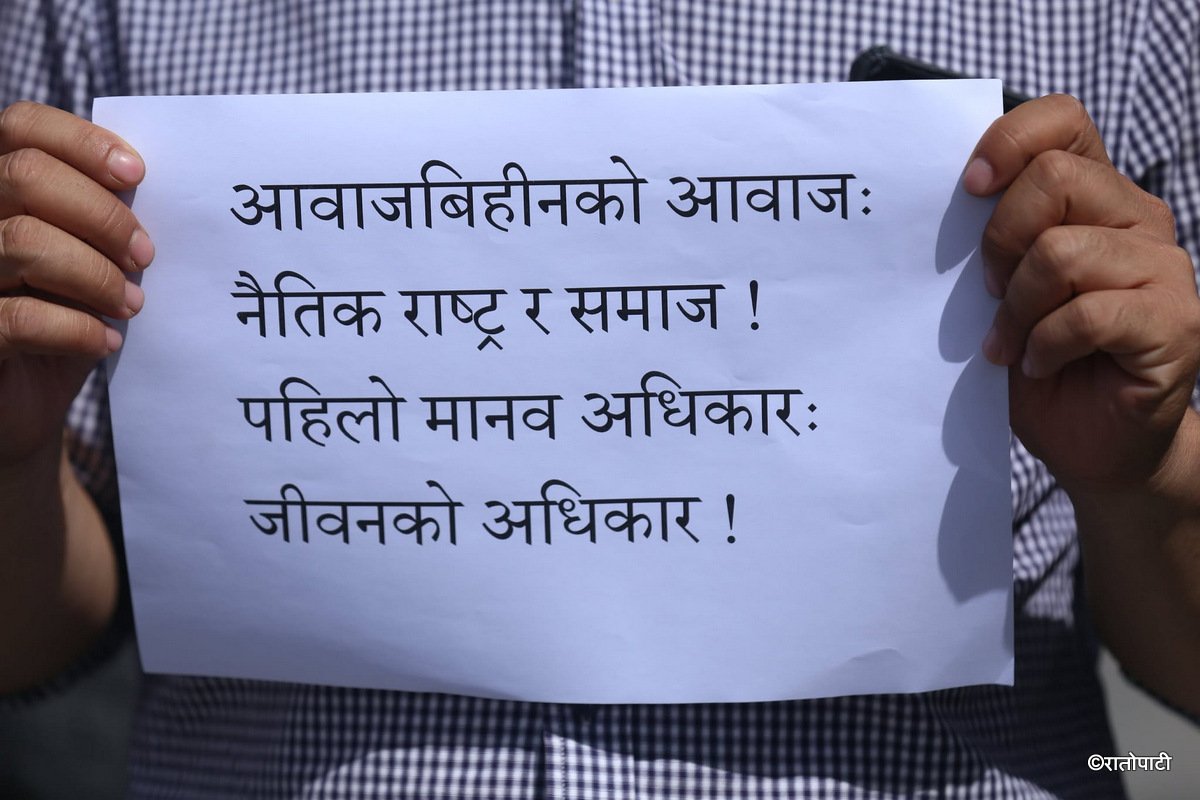 आवाजबिहीनको आवाजः
नैतिक राष्ट्र र समाज !
पहिलो मानव अधिकारः
जीवनको अधिकार !
©रातोपाटी